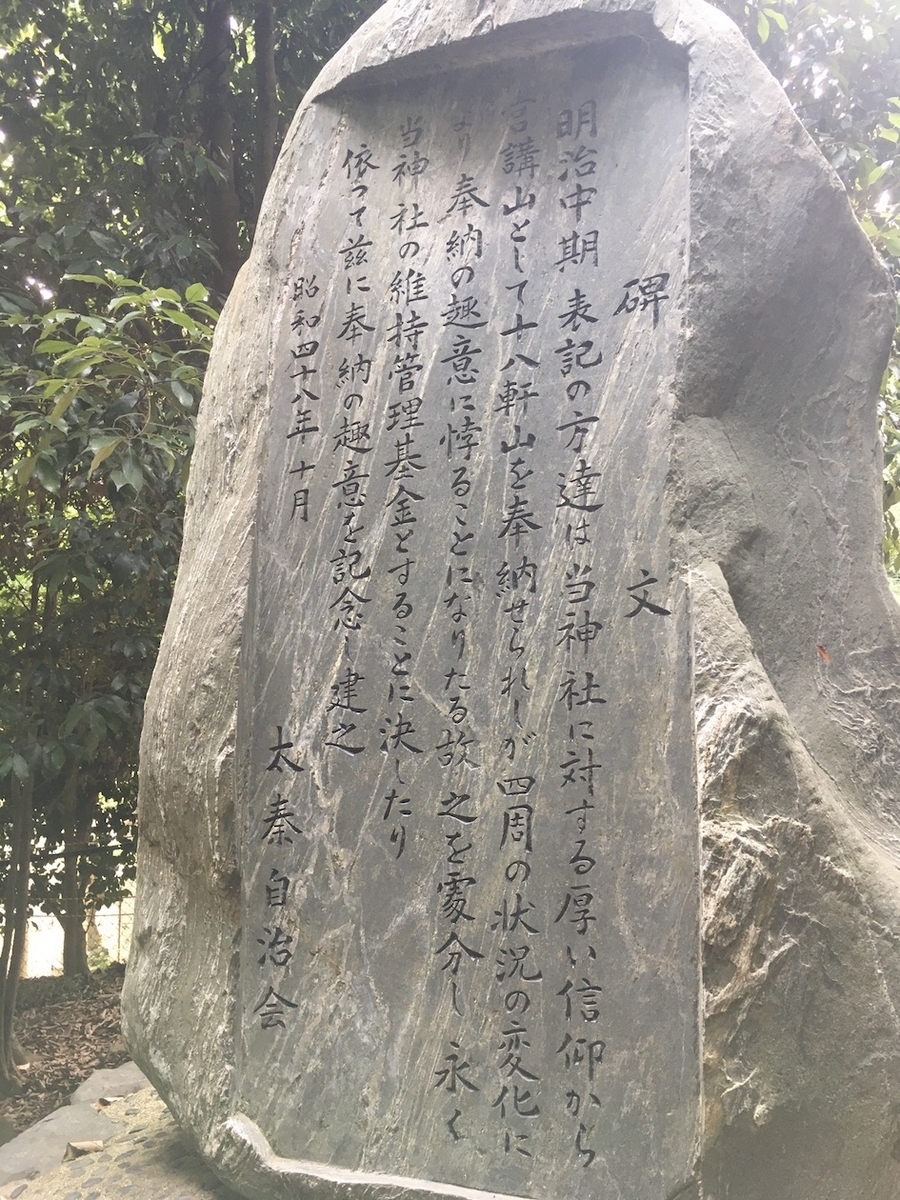 碑文
明治中期表記の方達は当神社に対する厚い信仰から
宮講山として十八軒山を奉納せられしが四周の状況の変化に
より奉納の趣意に悖ることになりたる故之を處分し永く
当神社の維持管理基金とすることに決したり
依つて茲に奉納の趣意を記念し建之
昭和四十八年十月
太秦自治会